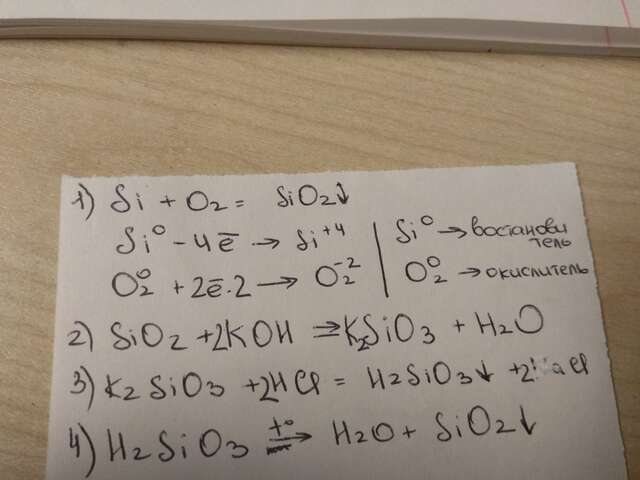 1) Si + O2 = SiO2↓
Si⁰ - 4ē → Si⁺⁴ | Si⁰ → востанови
тель
O2⁰ + 2ē·2 → O2⁻² | O2⁰ → окислитель
2) SiO2 + 2KOH ⇒ K2SiO3 + H2O
3) K2SiO3 + 2HCl = H2SiO3↓ +
4) H2SiO3 t°→ H2O + SiO2↓